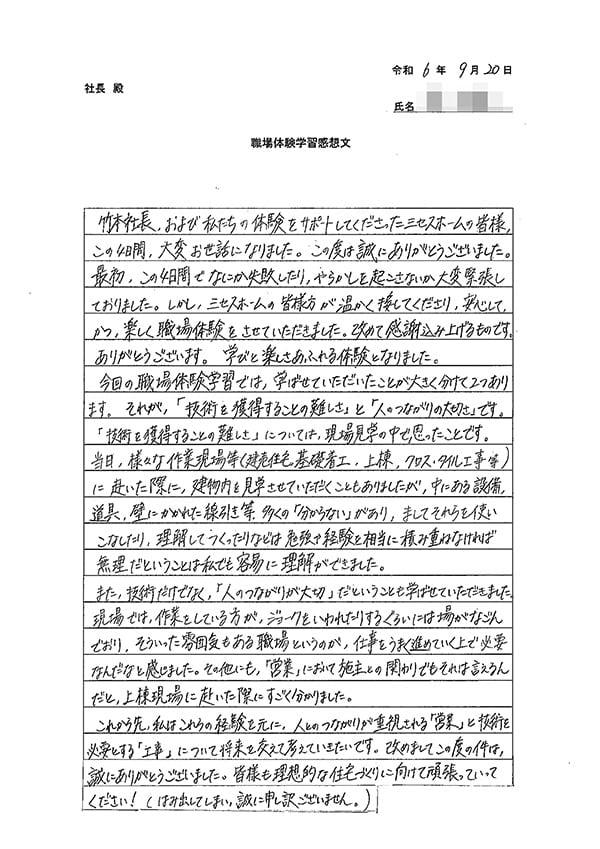 令和 6 年 9 月 20 日
社長 殿
氏名
職場体験学習感想文
竹本社長、および私たちの体験をサポートしてくださったミセスホームの皆様、
この4日間、大変お世話になりました。この度は誠にありがとうございました。
最初、この4日間でなにか失敗したり、やらかしを起こさないか大変緊張し
ておりました。しかし、ミセスホームの皆様方が温かく接してくださり、安心して、
かつ、楽しく職場体験をさせていただきました。改めて感謝込み上げるものです。
ありがとうございます。 学びと楽しさあふれる体験となりました。
今回の職場体験学習では、学ばせていただいたことが大きく分けて2つあり
ます。それが、「技術を獲得することの難しさ」と「人のつながりの大切さ」です。
「技術を獲得することの難しさ」については、現場見学の中で思ったことです。
当日、様々な作業現場等(建売住宅、基礎着工、上棟、クロス・タイル工事等)
に赴いた際に、建物内を見学させていただくこともありましたが、中にある設備、
道具、壁にかかれた線引き等、多くの「分からない」があり、ましてそれらを使い
こなしたり、理解してつくったりなどは勉強や経験を相当に積み重ねなければ
無理だということは私でも容易に理解ができました。
また、技術だけでなく、「人のつながりが大切」だということも学ばせていただきました。
現場では、作業をしている方が、ジョークをいわれたりするぐらいには場がなごん
でおり、そういった雰囲気もある職場というのが、仕事をうまく進めていく上で必要
なんだなと感じました。その他にも、「営業」において施主との関わりでもそれは言えるん
だと、上棟現場に赴いた際にすごく分かりました。
これから先、私はこれらの経験を元に、人とのつながりが重視される「営業」と技術を
必要とする「工事」について将来を交えて考えていきたいです。改めましてこの度の件は、
誠にありがとうございました。皆様も理想的な住宅づくりに向けて頑張っていって
ください！(はみ出してしまい、誠に申し訳ございません。)